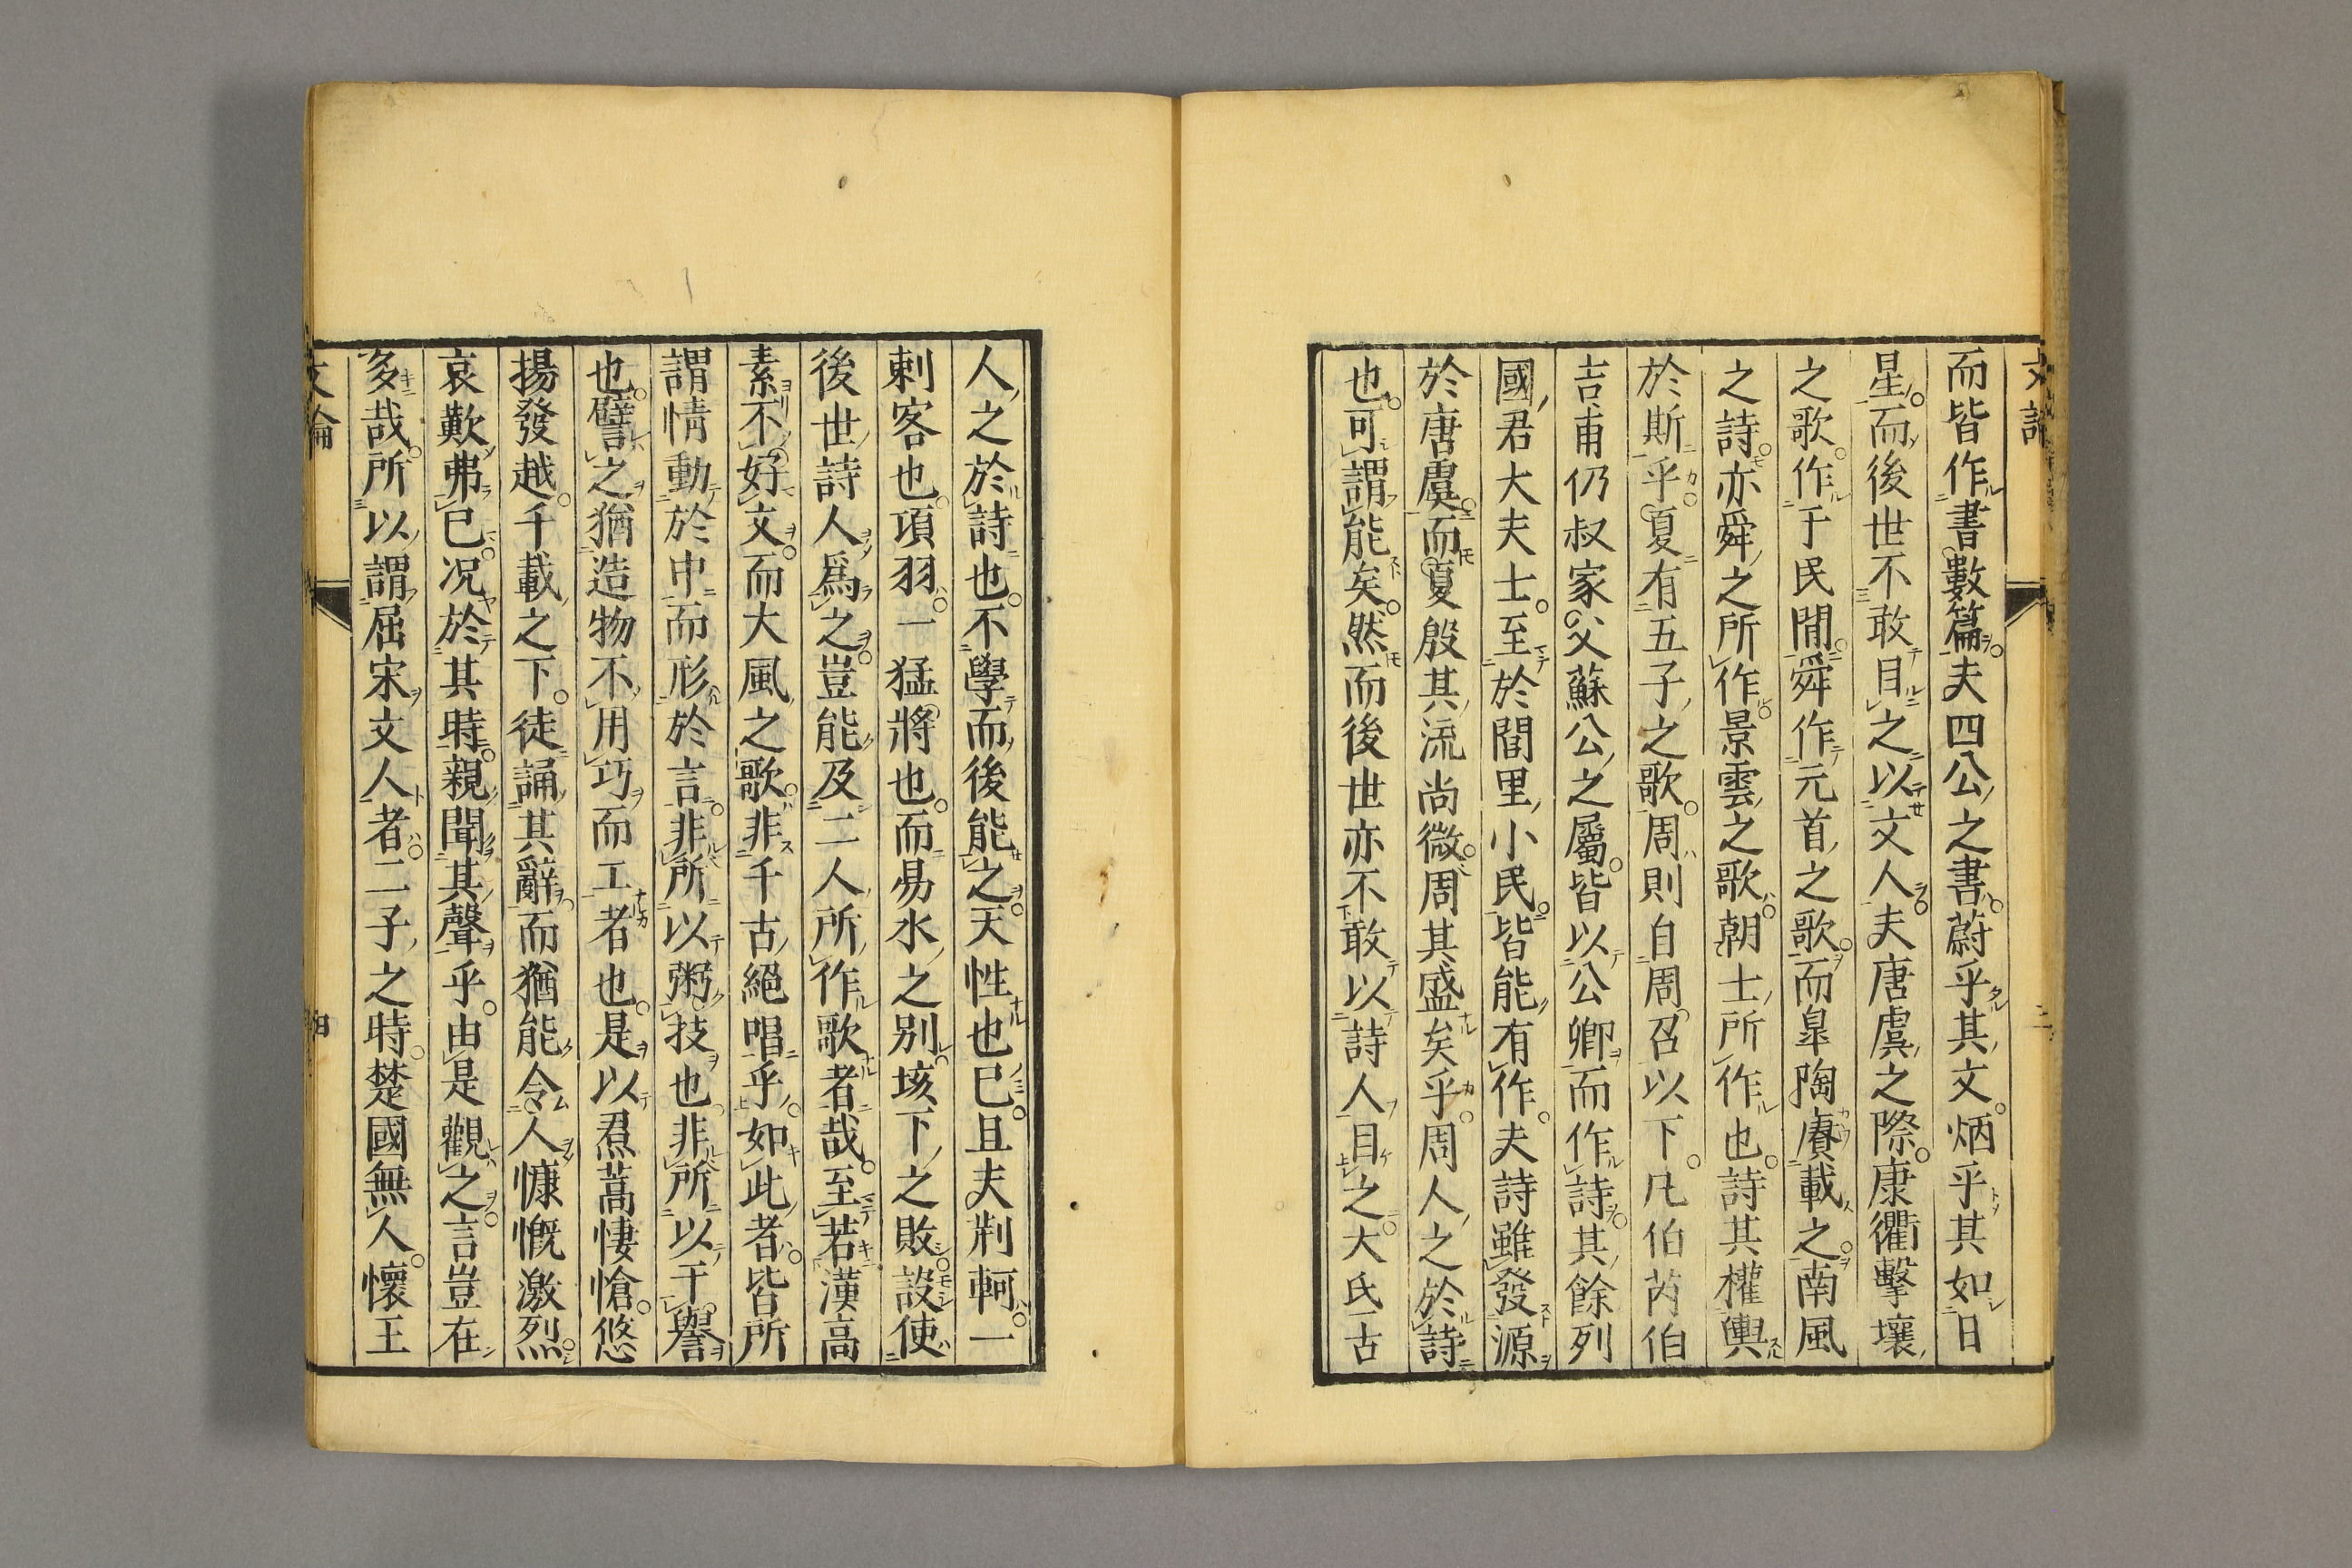 而皆作書數篇夫四公之書蔚乎其文炳乎其如日
星而後世不敢目之以文人夫唐虞之際康衢擊壤
之歌作于民間舜作元首之歌而皐陶賡載之南風
之詩亦舜之所作景雲之歌朝士所作也詩其權輿
於斯乎夏有五子之歌周則自周召以下凡伯芮伯
吉甫仍叔家父蘇公之屬皆以公卿而作詩其餘列
國君大夫士至於閭里小民皆能有作夫詩雖發源
於唐虞而夏殷其流尚微周其盛矣乎周人之於詩
也可謂能矣然而後世亦不敢以詩人目之大氐古
人之於詩也不學而後能之天性也已且夫荊軻一
刺客也項羽一猛將也而易水之別垓下之敗設使
後世詩人爲之豈能及二人所作歌者哉至若漢高
素不好文而大風之歌非千古絕唱乎如此者皆所
謂情動於中而形於言非所以粥技也非所以干譽
也譬之猶造物不用巧而工者也是以焄蒿悽愴悠
揚發越千載之下徒誦其辭而猶能令人慷慨激烈
哀歎弗已況於其時親聞其聲乎由是觀之言豈在
多哉所以謂屈宋文人者二子之時楚國無人懷王
文論